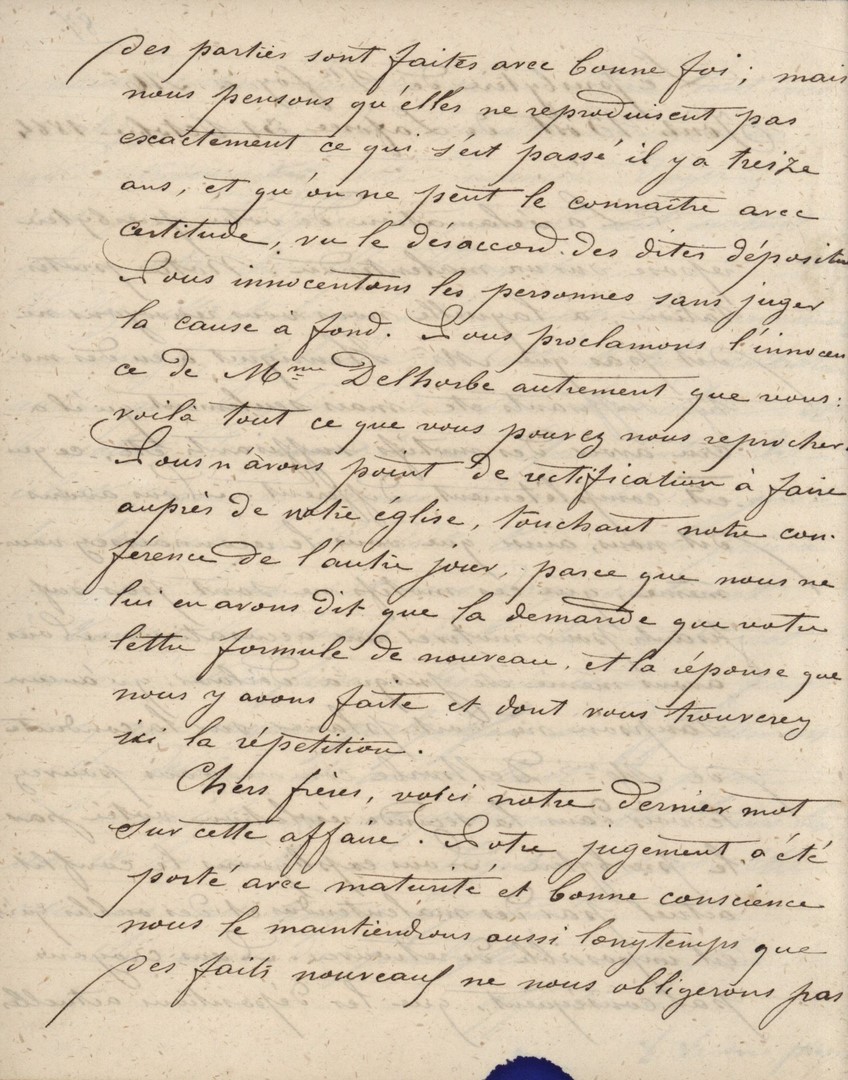 des parties sont faites avec bonne foi ; mais
nous pensons qu'elles ne reproduisent pas
exactement ce qui s'est passé il y a treize
ans, et qu'on ne peut le connaître avec
certitude, vu le désaccord des dites déposit
Nous innocentons les personnes sans juger
la cause à fond. Nous proclamons l'innocen
ce de Mme Delhorbe autrement que vous :
voilà tout ce que vous pouvez nous reprocher.
Nous n'avons point de rectification à faire
auprès de notre église, touchant notre con-
férence de l'autre jour, parce que nous ne
lui en avons dit que la demande que votre
lettre formule de nouveau, et la réponse que
nous y avons faite et dont vous trouverez
ici la répetition.
Chers frères, voici notre dernier mot
sur cette affaire. Notre jugement a été
porté avec maturité et bonne conscience
nous le maintiendrons aussi longtemps que
des faits nouveaux ne nous obligerons pas